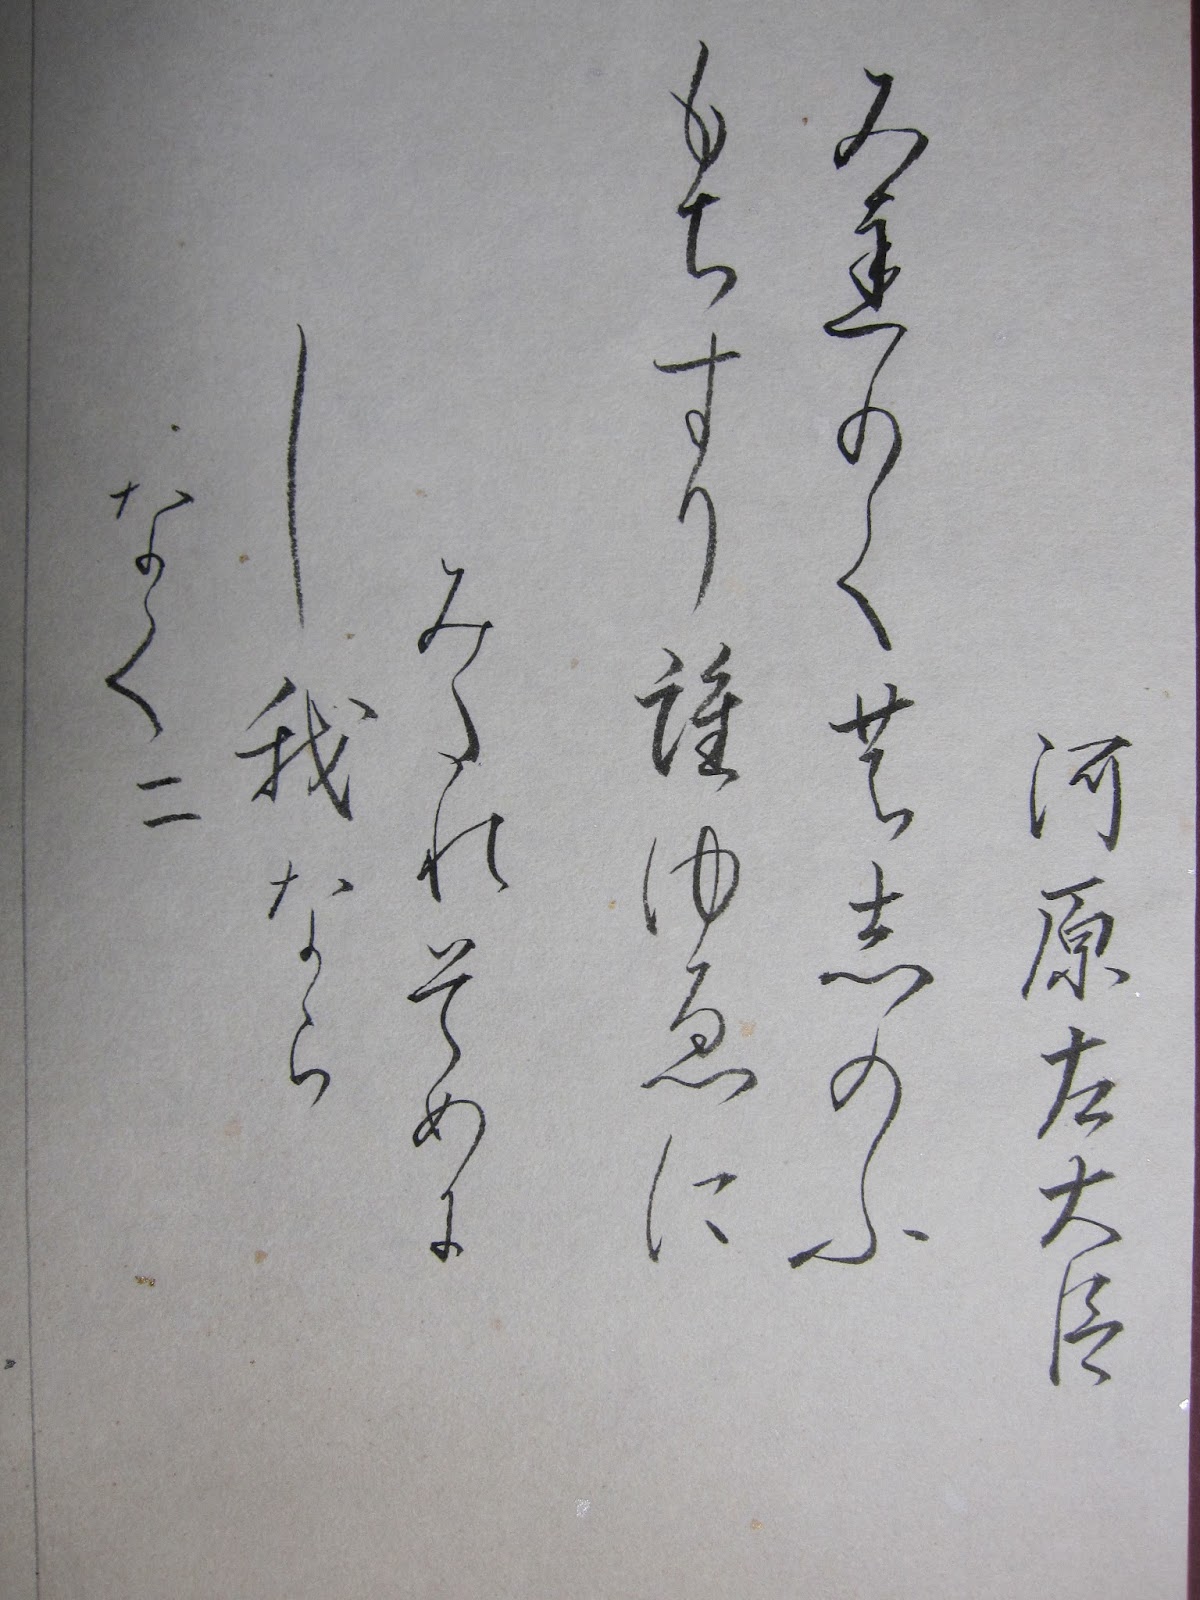 河原左大臣
み遅のく世志のふ
もちすり誰ゆゑに
みたれそめに
し我なら
なくニ